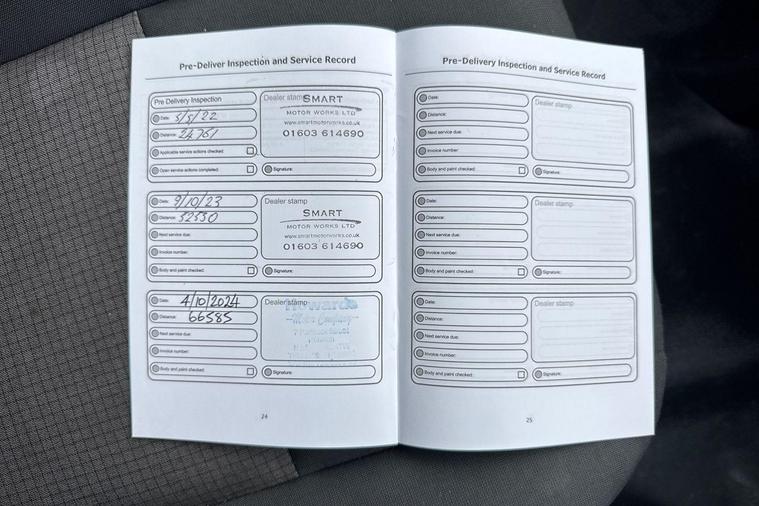 Pre-Deliver Inspection and Service Record
Pre Delivery Inspection
Date: 5/5/22
Distance: 24761
Applicable service actions checked:
Open service actions completed:
Dealer stamp
SMART
MOTOR WORKS LTD
www.smartmotorworks.co.uk
01603 614690
Signature:
Date: 9/10/23
Distance: 52530
Next service due:
Invoice number:
Body and paint checked:
Dealer stamp
SMART
MOTOR WORKS LTD
www.smartmotorworks.co.uk
01603 614690
Signature:
Date: 4/10/2024
Distance: 66585
Next service due:
Invoice number:
Body and paint checked:
Dealer stamp
Howards
Motor Company
Signature:
24
Pre-Delivery Inspection and Service Record
Date:
Distance:
Next service due:
Invoice number:
Body and paint checked:
Dealer stamp
Signature:
Date:
Distance:
Next service due:
Invoice number:
Body and paint checked:
Dealer stamp
Signature:
Date:
Distance:
Next service due:
Invoice number:
Body and paint checked:
Dealer stamp
Signature:
25